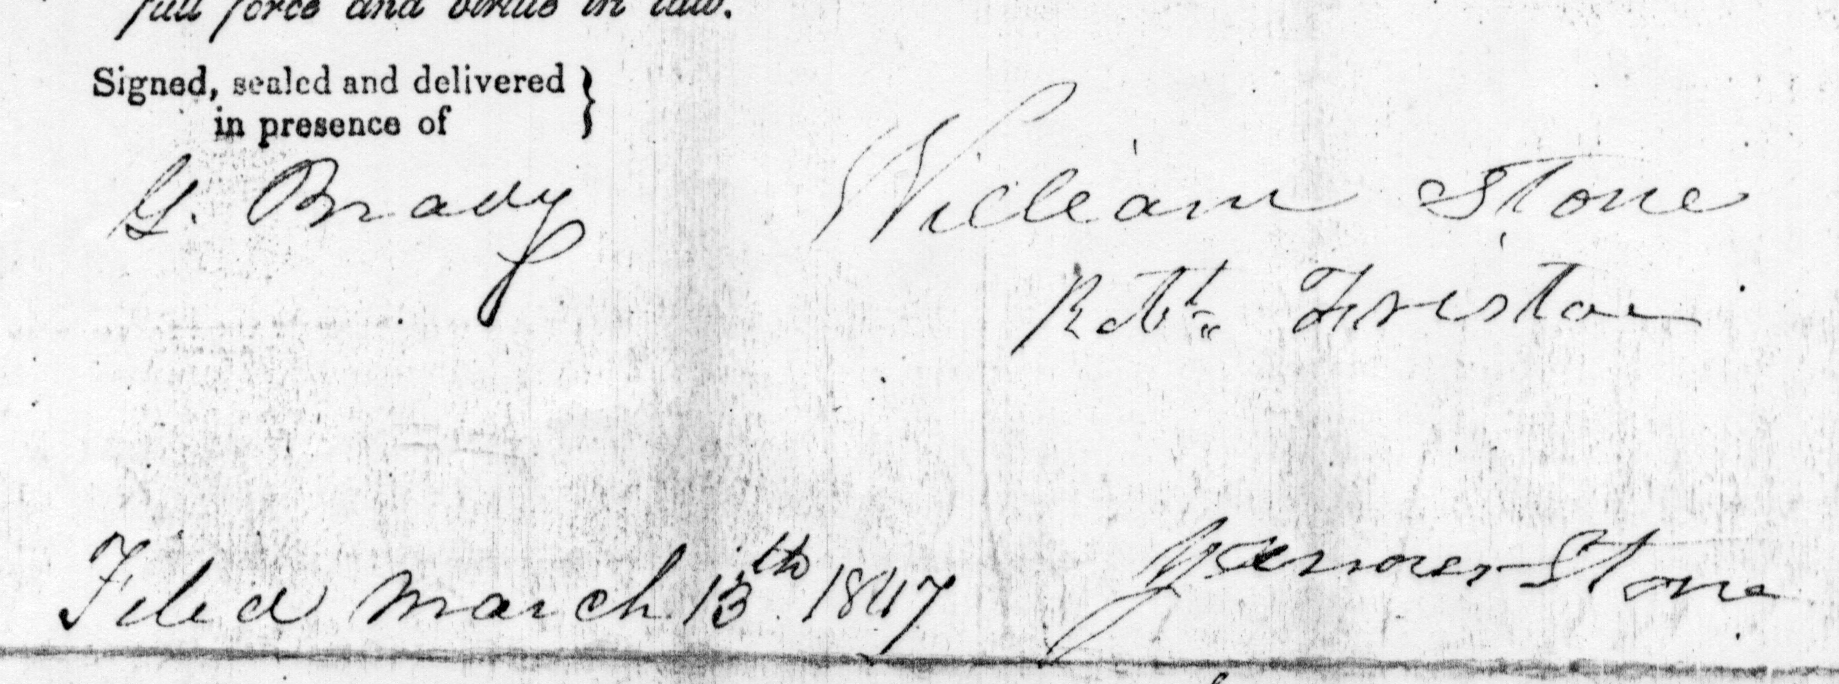 full force and virtue in law.
Signed, sealed and delivered
in presence of
G. Brady
William Stone
Robt. Friston
Filed March 13th 1847
Stone